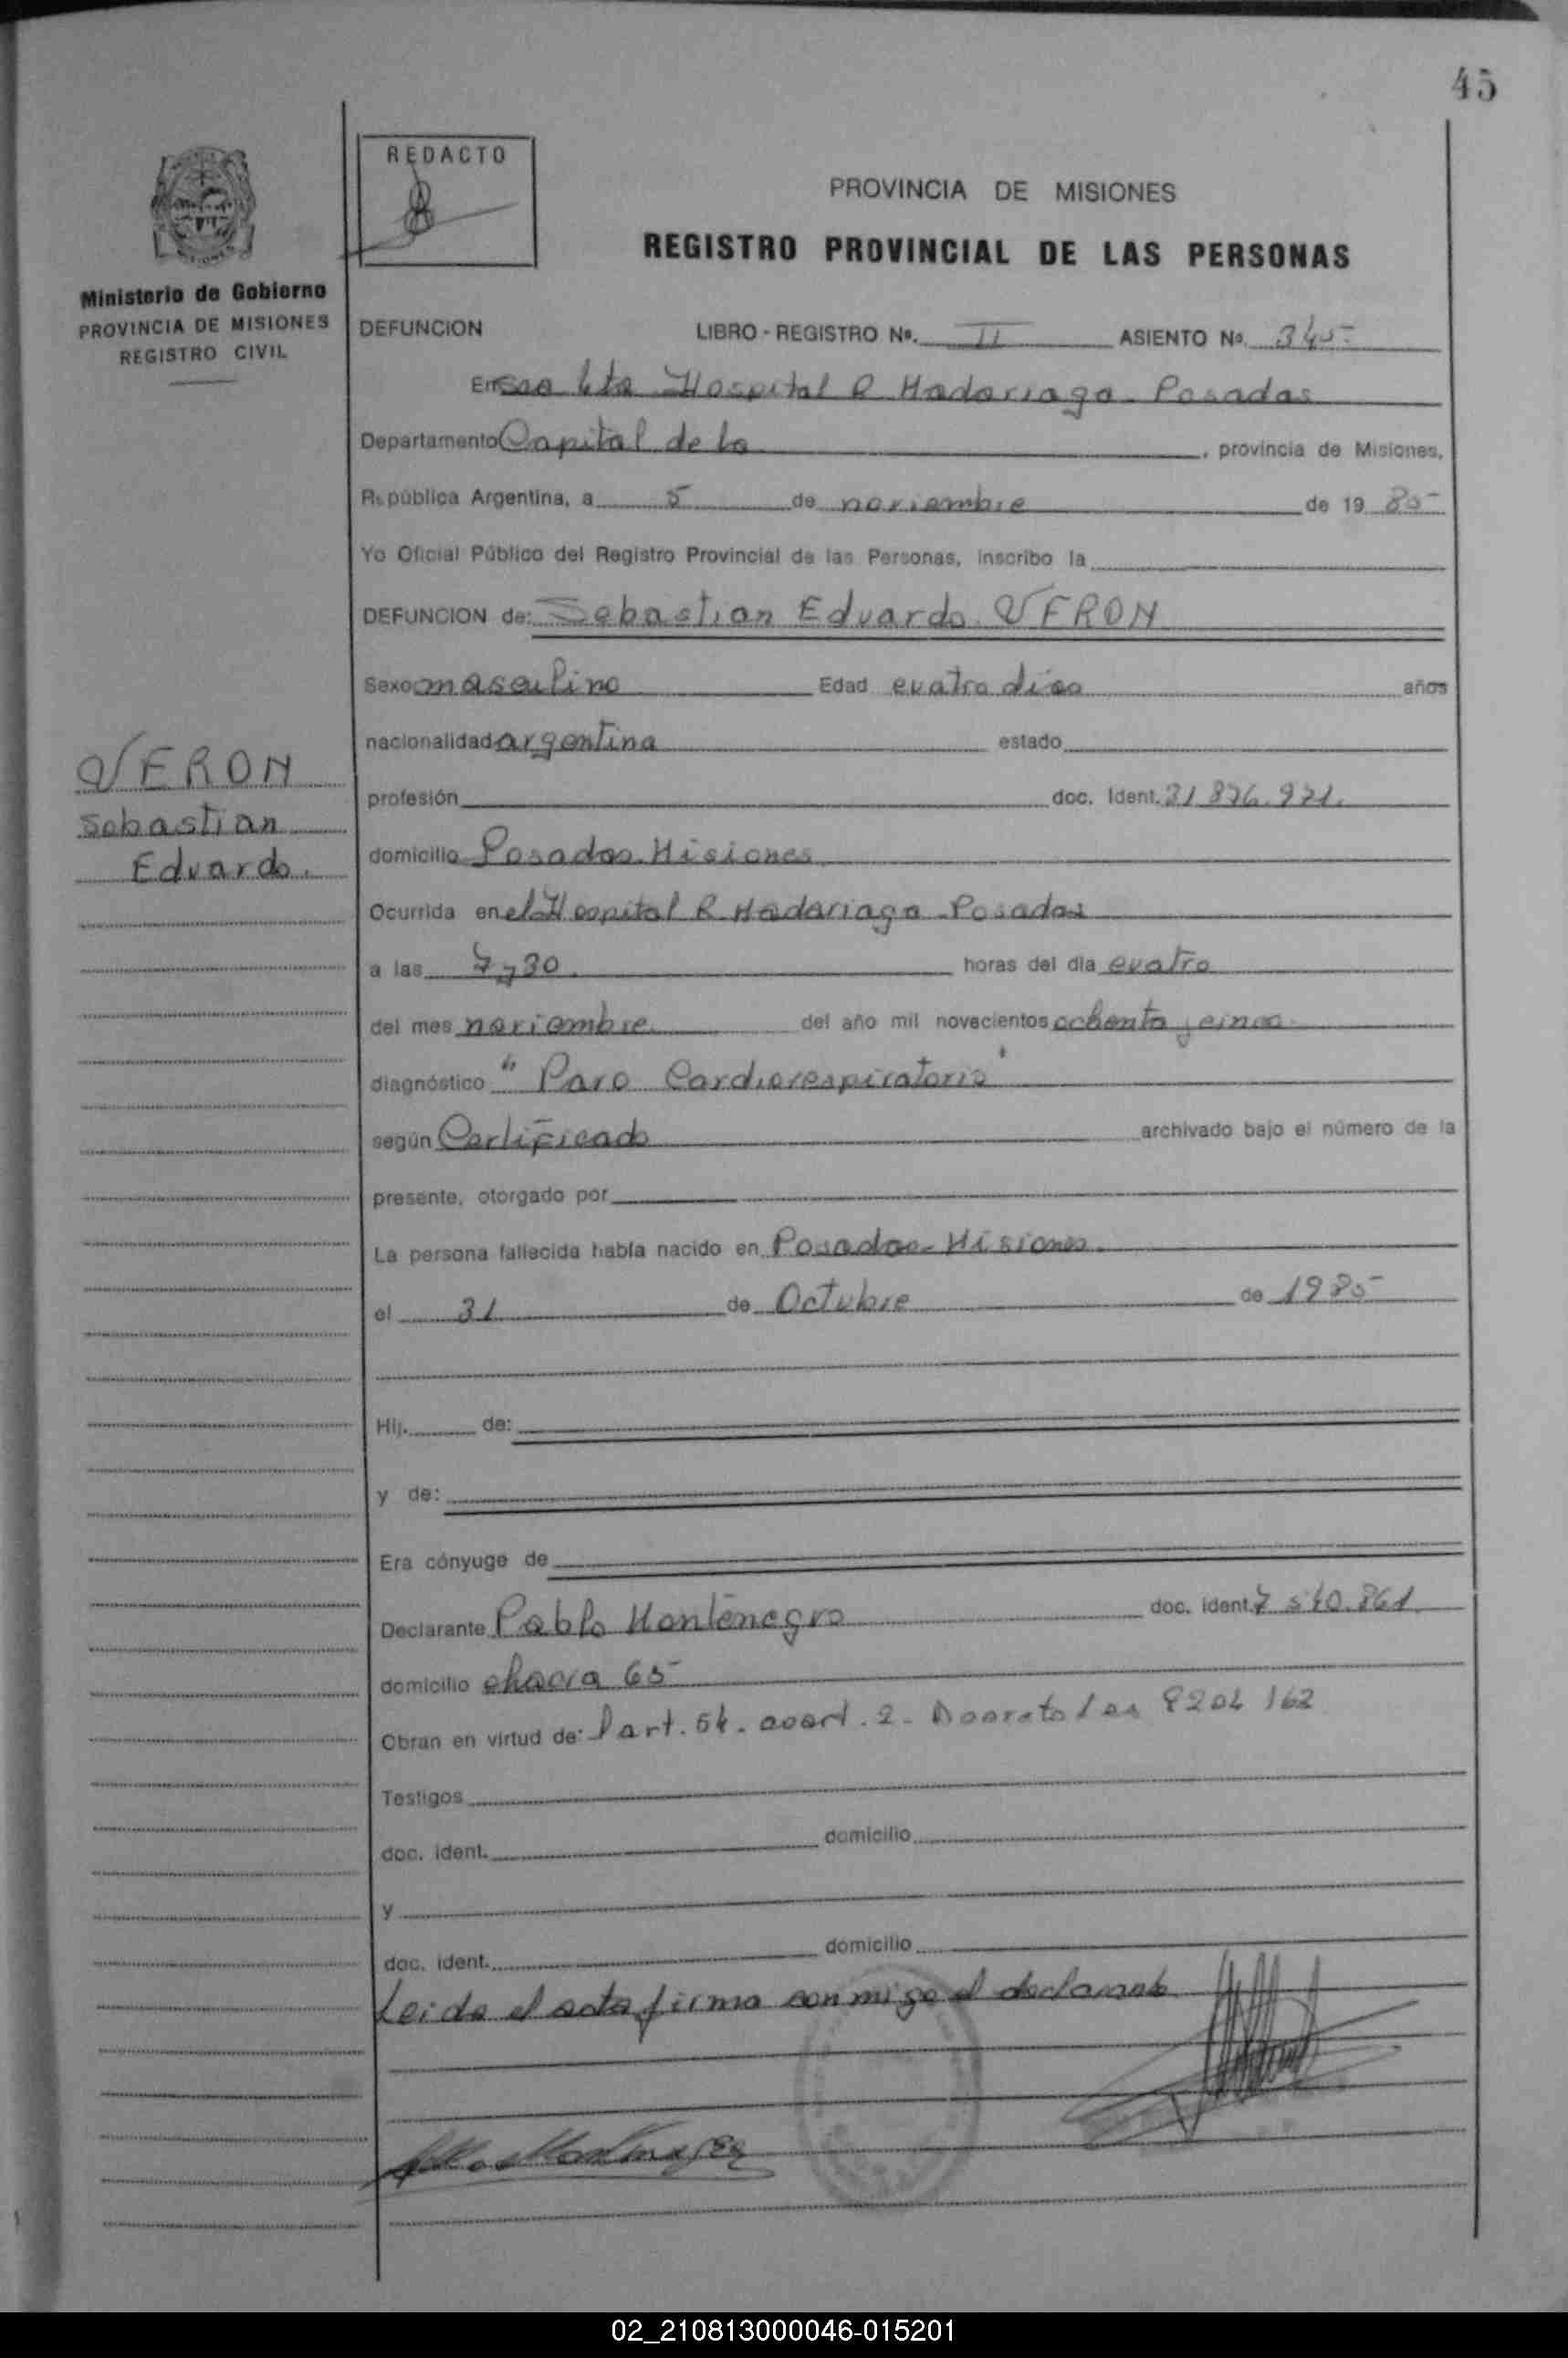 45
REDACTO
PROVINCIA DE MISIONES
REGISTRO PROVINCIAL DE LAS PERSONAS
Ministerio de Gobierno
PROVINCIA DE MISIONES
REGISTRO CIVIL
DEFUNCION LIBRO - REGISTRO Nº. II ASIENTO Nº. 345
En Hospital R Madariaga Posadas
Departamento Capital de la , provincia de Misiones,
República Argentina, a 5 de noviembre de 19 85
Yo Oficial Público del Registro Provincial de las Personas, inscribo la
DEFUNCION de: Sebastian Eduardo VERON
Sexo masculino Edad cuatro dias años
nacionalidad argentina estado
profesión doc. Ident. 31.876.971.
domicilio Posadas Misiones
Ocurrida en el Hospital R Madariaga Posadas
a las 7 y 30 horas del día cuatro
del mes noviembre del año mil novecientos ochenta y cinco
diagnóstico "Paro Cardiorespiratorio"
según Certificado archivado bajo el número de la
presente, otorgado por
La persona fallecida había nacido en Posadas - Misiones
el 31 de Octubre de 1985
Hij. de:
y de:
Era cónyuge de
Declarante Pablo Montenegro doc. ident. 7.540.861
domicilio chacra 65
Obran en virtud de: art. 54. 2 - Decreto Ley 8204/63
Testigos
doc. ident. domicilio
y
doc. ident. domicilio
Leida el acta firma conmigo el declarante
VERON
Sebastian
Eduardo.
02_210813000046-015201